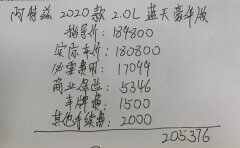 阿特兹 2020款 2.0L 蓝天豪华版
指导价: 184800
实际车价: 180800
必需费用: 17099
商业保险: 5346
车牌费: 1500
其他手续费: 2000
205376